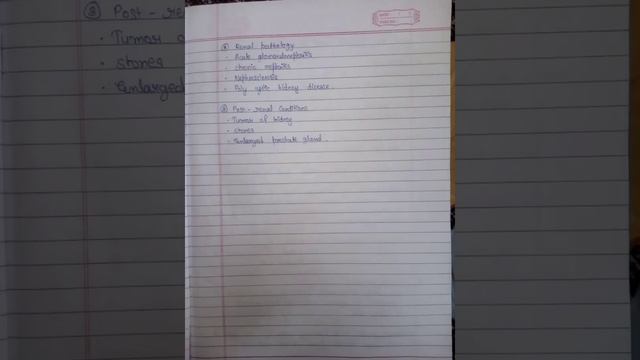 ③ Post - re
• Tumor o
• stones
• Enlarged
DATE: / /
PAGE NO.
② Renal pathology
• Acute glomerulonephritis
• chronic nephritis
• Nephrosclerosis
• Poly cystic kidney disease
③ Post- renal conditions
• Tumor of kidney
• stones
• Enlarged prostate gland.